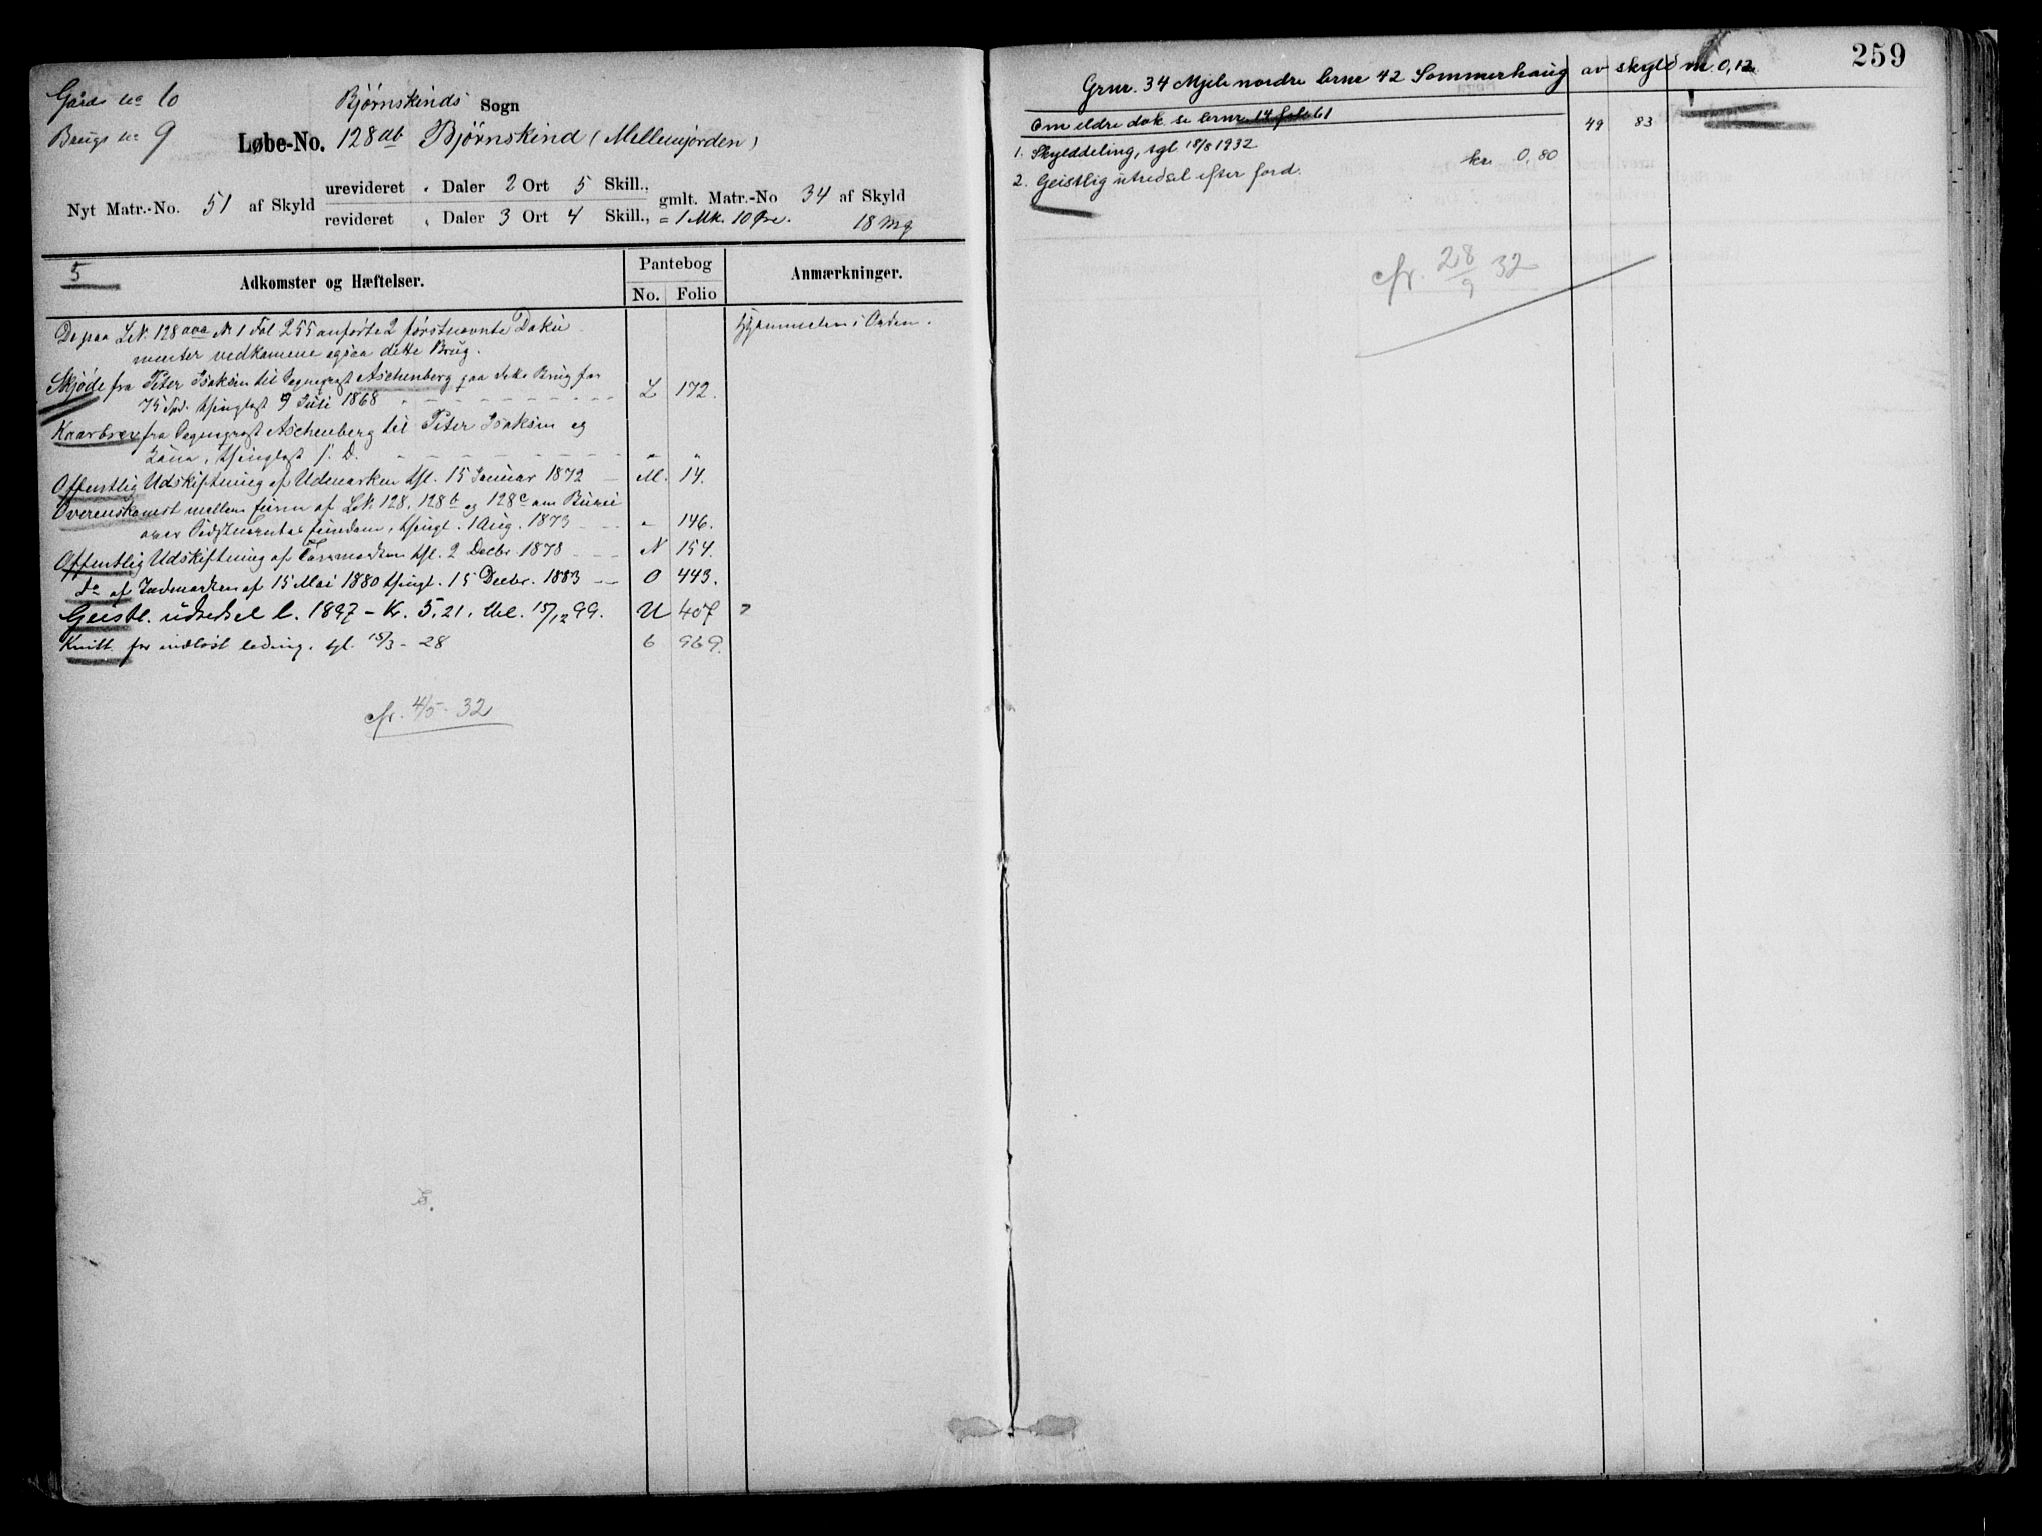 Gårds No 6
Brugs No 9
Bjørnskinds Sogn
Løbe-No. 128ab Bjørnskind (Mellemjorden)
Nyt Matr.-No. 51 af Skyld
urevideret " Daler 2 Ort 5 Skill.,
revideret " Daler 3 Ort 4 Skill., = 1 Mk. 10 Øre.
gmlt. Matr.-No 34 af Skyld
18 Mg
5
Adkomster og Hæftelser.
Pantebog
No. Folio
Anmærkninger.
De paa L.N. 128aaa No 1 Fol 255 anførte 2 førstnævnte Doku
menter vedkomme ogsaa dette Brug.
Hjemmelen i Orden.
Skjøde fra Peter Isaksen til Sogneprest Aschenberg paa dette Brug for
75 Spd. thinglæst 9 Juli 1868 L 172.
Kaarbrev fra Sogneprest Aschenberg til Peter Isaksen og
thinglæst s. D. " "
Offentlig Udskiftning af Udmarken thl. 15 Januar 1872 M. 14.
Overenskomst mellem Eierne af L.N. 128, 128b og 128c om
over Eiendom, thingl. 1 Aug. 1873 " 146.
Offentlig Udskiftning af thl. 2 Decbr. 1878 N 154.
do af Indmarken af 15 Mai 1880 thingl. 15 Decbr. 1883 O 443.
Geistl. udredsel l. 1897 - Kr. 5,21, thl. 15/12 99. U 407
Kvitt for indløst leding, tgl. 15/3 - 28 6 969.
cfr. 4/5 - 32
259
Grnr. 34 Mjele nordre brnr 42 Sommerhaug av skyld m. 0,12
Om eldre dok. se brnr. 14 fol 61
1. Skylddeling, tgl 18/8 1932 49 83
2. Geistlig utredsel efter ford. kr. 0,80
cfr. 28/9 32